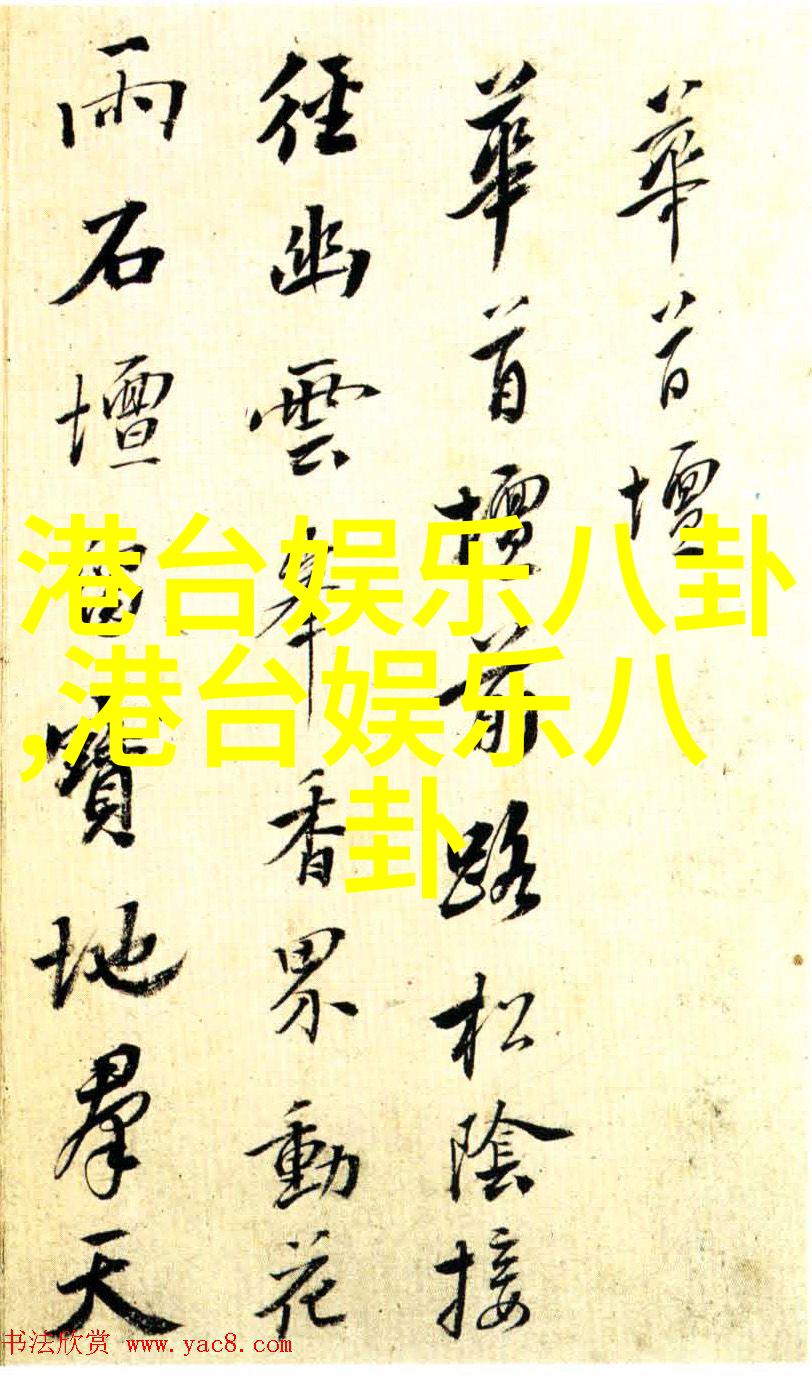 華首壇
華首壇前路松陰接
徑幽雲峯香界動花
雨石壇寶地羣天
港台娱乐八卦
,港台娱乐八
卦
书法欣赏 www.yac8.com